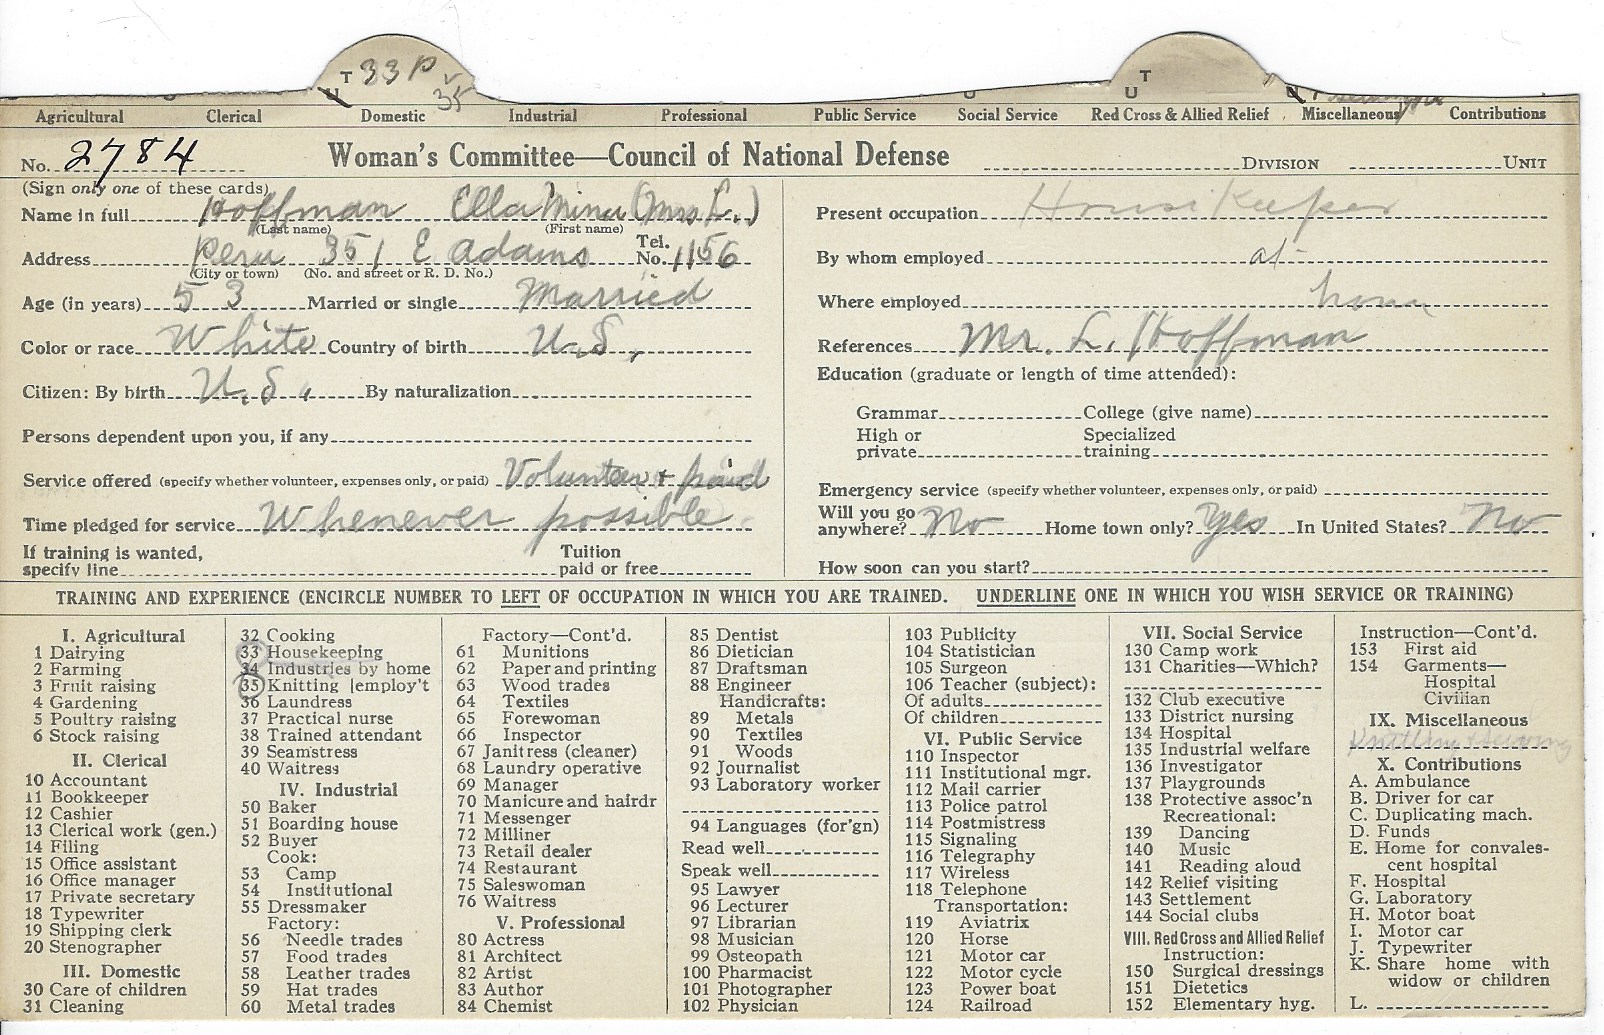 T 33 P 35 T
U U U
Agricultural Clerical Domestic Industrial Professional Public Service Social Service Red Cross & Allied Relief Miscellaneous Contributions
No. 2784 Woman's Committee—Council of National Defense DIVISION UNIT
(Sign only one of these cards)
Name in full Hoffman Ella Mina (Mrs. L.)
(Last name) (First name)
Address Peru 351 E. Adams Tel. No. 1156
(City or town) (No. and street or R. D. No.)
Age (in years) 53 Married or single Married
Color or race White Country of birth U.S.
Citizen: By birth U.S. By naturalization
Persons dependent upon you, if any
Service offered (specify whether volunteer, expenses only, or paid) Volunteer + paid
Time pledged for service Whenever possible
If training is wanted, specify line Tuition paid or free
Present occupation House Keeper
By whom employed at
Where employed home
References Mr. L. Hoffman
Education (graduate or length of time attended):
Grammar College (give name)
High or private Specialized training
Emergency service (specify whether volunteer, expenses only, or paid)
Will you go anywhere? No Home town only? Yes In United States? No
How soon can you start?
TRAINING AND EXPERIENCE (ENCIRCLE NUMBER TO LEFT OF OCCUPATION IN WHICH YOU ARE TRAINED. UNDERLINE ONE IN WHICH YOU WISH SERVICE OR TRAINING)
I. Agricultural
1 Dairying
2 Farming
3 Fruit raising
4 Gardening
5 Poultry raising
6 Stock raising
II. Clerical
10 Accountant
11 Bookkeeper
12 Cashier
13 Clerical work (gen.)
14 Filing
15 Office assistant
16 Office manager
17 Private secretary
18 Typewriter
19 Shipping clerk
20 Stenographer
III. Domestic
30 Care of children
31 Cleaning
32 Cooking
33 Housekeeping
34 Industries by home
35 Knitting [employ't
36 Laundress
37 Practical nurse
38 Trained attendant
39 Seamstress
40 Waitress
IV. Industrial
50 Baker
51 Boarding house
52 Buyer
Cook:
53 Camp
54 Institutional
55 Dressmaker
Factory:
56 Needle trades
57 Food trades
58 Leather trades
59 Hat trades
60 Metal trades
Factory—Cont'd.
61 Munitions
62 Paper and printing
63 Wood trades
64 Textiles
65 Forewoman
66 Inspector
67 Janitress (cleaner)
68 Laundry operative
69 Manager
70 Manicure and hairdr
71 Messenger
72 Milliner
73 Retail dealer
74 Restaurant
75 Saleswoman
76 Waitress
V. Professional
80 Actress
81 Architect
82 Artist
83 Author
84 Chemist
85 Dentist
86 Dietician
87 Draftsman
88 Engineer
Handicrafts:
89 Metals
90 Textiles
91 Woods
92 Journalist
93 Laboratory worker
94 Languages (for'gn)
Read well
Speak well
95 Lawyer
96 Lecturer
97 Librarian
98 Musician
99 Osteopath
100 Pharmacist
101 Photographer
102 Physician
103 Publicity
104 Statistician
105 Surgeon
106 Teacher (subject):
Of adults
Of children
VI. Public Service
110 Inspector
111 Institutional mgr.
112 Mail carrier
113 Police patrol
114 Postmistress
115 Signaling
116 Telegraphy
117 Wireless
118 Telephone
Transportation:
119 Aviatrix
120 Horse
121 Motor car
122 Motor cycle
123 Power boat
124 Railroad
VII. Social Service
130 Camp work
131 Charities—Which?
132 Club executive
133 District nursing
134 Hospital
135 Industrial welfare
136 Investigator
137 Playgrounds
138 Protective assoc'n
Recreational:
139 Dancing
140 Music
141 Reading aloud
142 Relief visiting
143 Settlement
144 Social clubs
VIII. Red Cross and Allied Relief
Instruction:
150 Surgical dressings
151 Dietetics
152 Elementary hyg.
Instruction—Cont'd.
153 First aid
154 Garments—
Hospital
Civilian
IX. Miscellaneous
Knitting & sewing
X. Contributions
A. Ambulance
B. Driver for car
C. Duplicating mach.
D. Funds
E. Home for convales-
cent hospital
F. Hospital
G. Laboratory
H. Motor boat
I. Motor car
J. Typewriter
K. Share home with
widow or children
L.